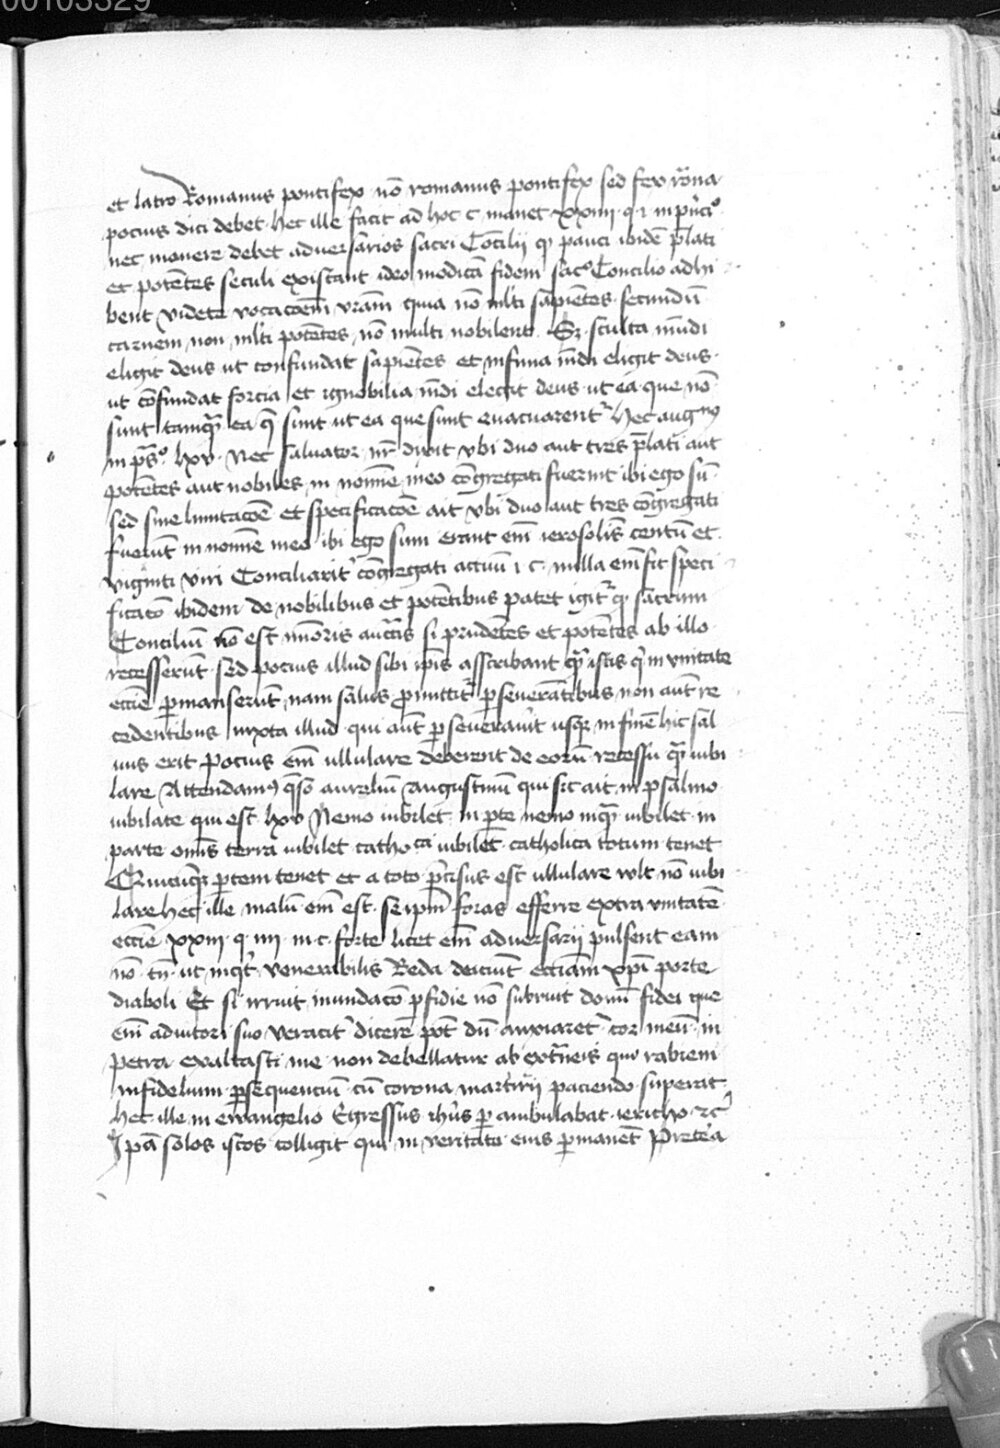 00103329
et latro Romanus pontifex nō romanus pontifex sed fex rōna
pocius dici debet · Hec ille facit ad hoc c · manet xxiiii · q · i · in prīci°
nec mouere debet aduersarios sacri Cōcilij qꝫ pauci ibidē p̄lati
et potētes seculi existant ideo modicā fidem sac° Concilio adhi
bent videte vocacōem vrām quia nō mlti sapiētes secundū
carnem non mlti potētes nō multi nobiles · Sꝫ stulta mūdi
eligit deus ut confundat sapiētes et infirma mdi eligit deus
ut cōfundat forcia et ignobilia mdi elegit deus ut ea que nō
sunt tamqꝫ ea q̄ sunt ut ea que sunt euacuarent᷑ Hec augꝰ
in ps° lxv · Nec saluator nr̄ dixit vbi duo aut tres p̄lati aut
potētes aut nobiles in nomīe meo cōgregati fuerint ibi ego sū
sed sine limitacōe et specificacōe ait vbi duo aut tres cōgregati
fuerīt in nomīe meo ibi ego sum erant em̄ ierosolīs centū et
viginti viri Conciliarit᷑ cōgregati actuū i c · nulla em̄ fit speci
ficacō ibidem de nobilibus et potētibus patet igit᷑ qꝫ sacrum
Conciliū nō est mīoris auctīs si prudētes et potētes ab illo
recesserūt sed pocius illud sibi ip̄is asscribant qꝫ istis q̄ in vnitate
ecc̄ie ꝑmanserūt nam salus ꝓmittit᷑ ꝑseuerātibus non aūt re
cedentibus iuxta illud qui aūt ꝑseuerauīt usqꝫ in finē hic sal
uus erit Pocius em̄ ullulare deberent de eorū recessu qꝫ iubi
lare Attendamꝰ q̄so aureliū Augustinū qui sic ait in psalmo
iubilate qui est lxv Nemo iubilet in p̄te nemo inqꝫ iubilet in
parte om̄is terra iubilet catho ca iubilet catholica totum tenet
Quicūqꝫ ꝑtem tenet et a toto p̄cisus est ullulare vult nō iubi
lare Hec ille malū em̄ est seip̄m foras efferre extra vnitatē
ecc̄ie xxiii · q · iiii · in c · forte licet em̄ aduersarij pulsent eam
nō tn̄ ut inqt᷑ venerabilis Beda deiciūt ecc̄iam xp̄i porte
diaboli Et si irruit inundacō ꝑfidie nō subruit domū fidei que
em̄ adiutori suo veracit᷑ dicere pōt dū anxiaret᷑ cor meū in
petra exaltasti me non debellatur ab ext̄neis qui rabiem
infidelium ꝑsequenciū cū corona martirij paciendo superat
Hec ille in ewangelio Egressus ih̄us ꝑambulabat iericho ⁊c
Ip̄a solos istos colligit qui in veritate eius ꝑmanēt Pretēa